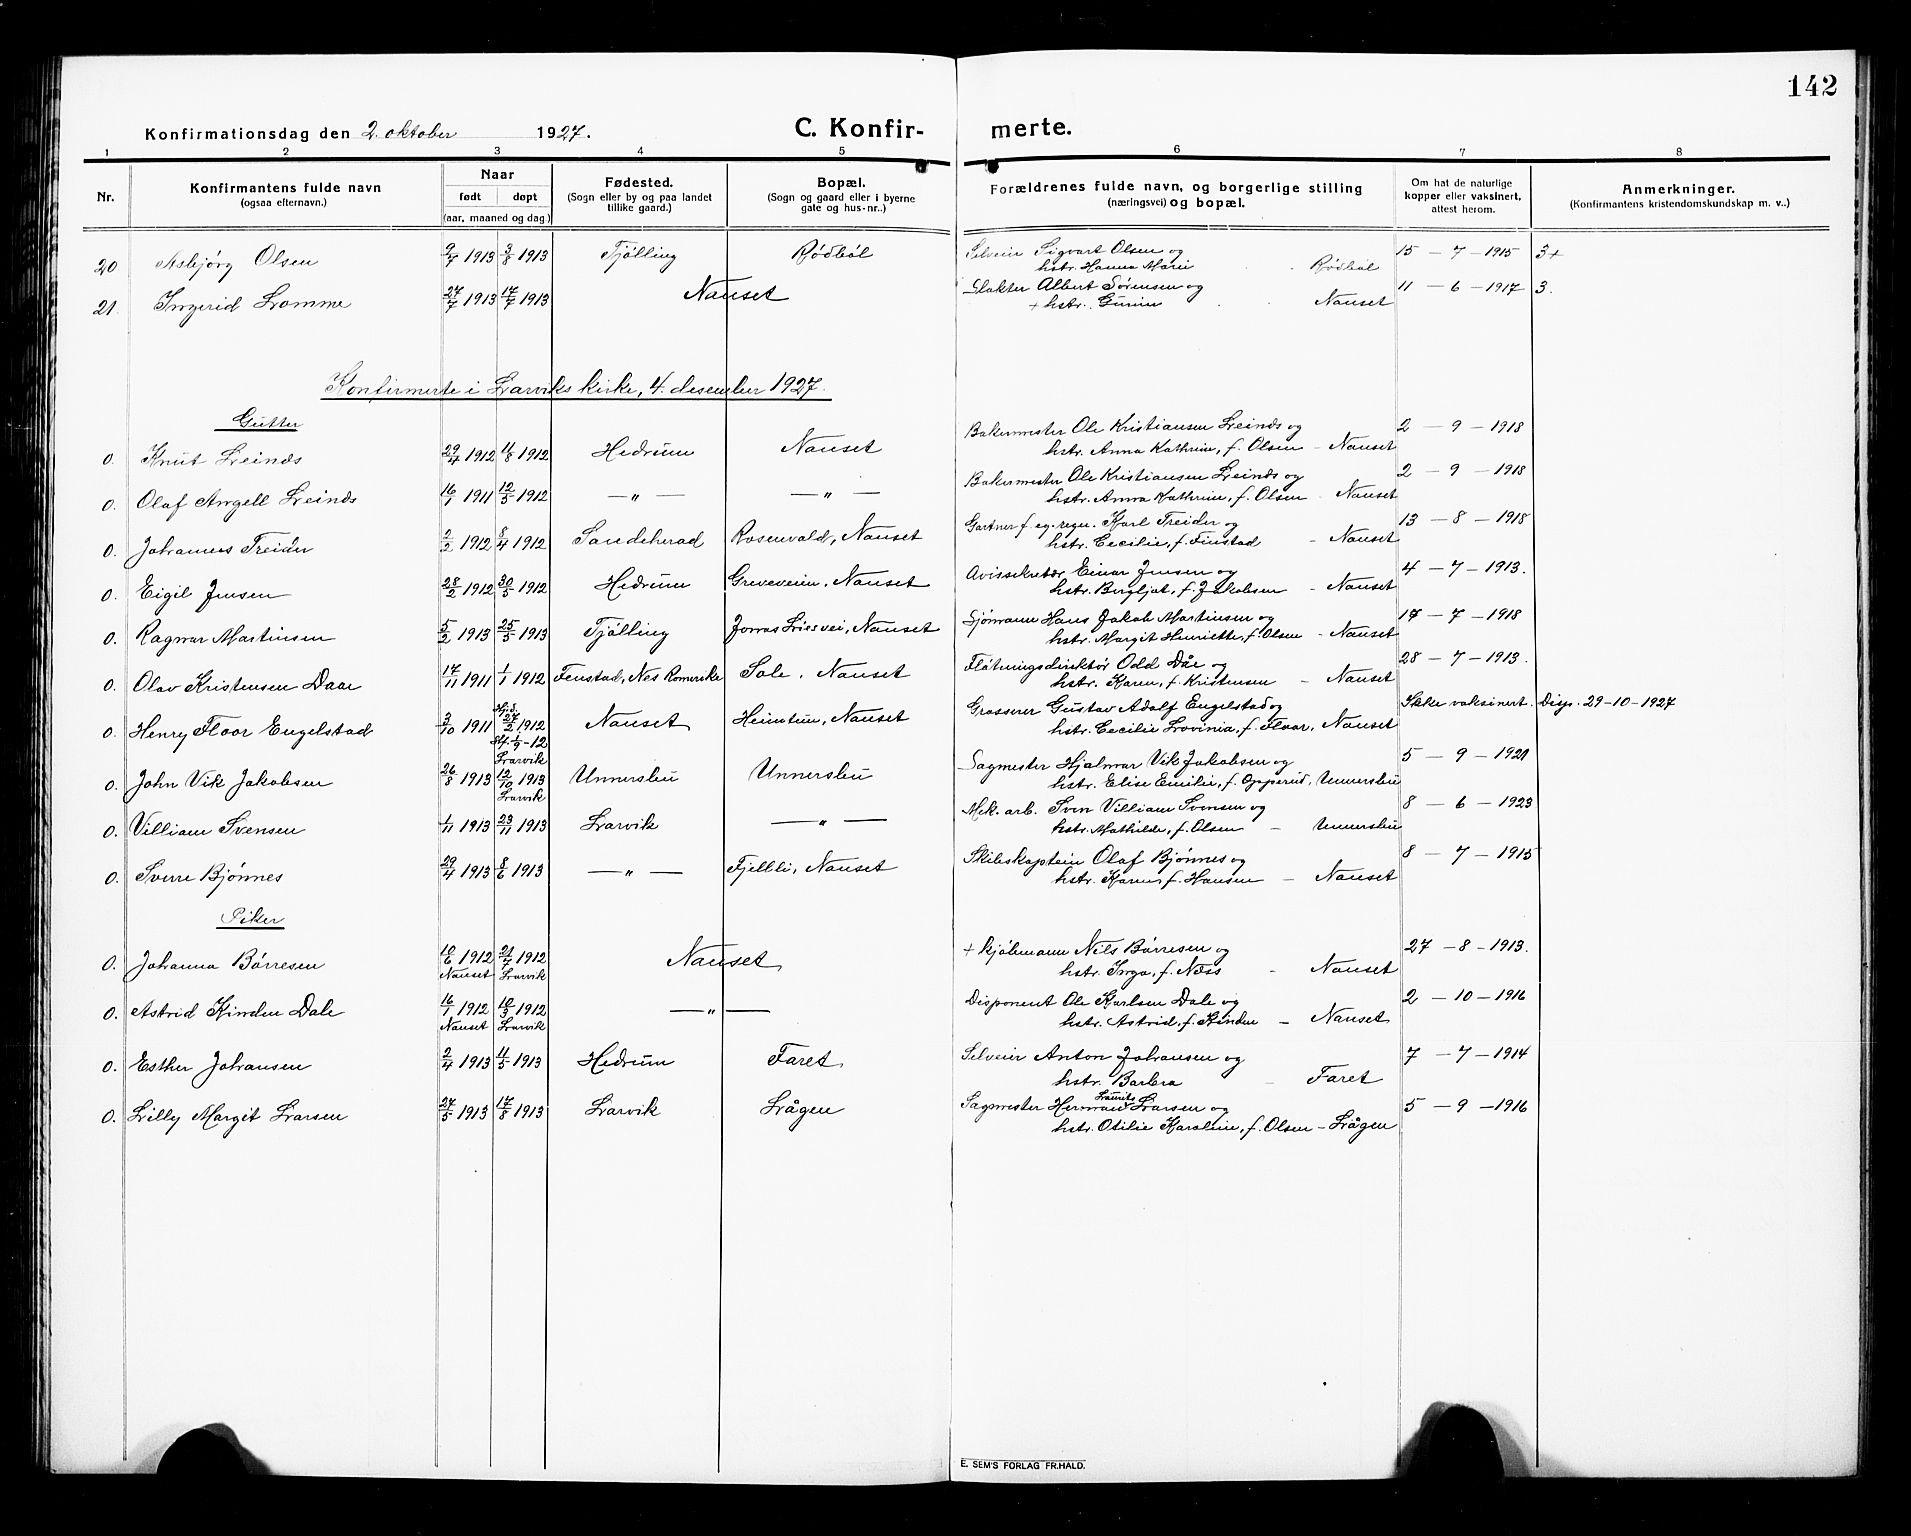 142
Konfirmationsdag den 2. oktober 1927. C. Konfir- merte.
1 2 3 4 5 6 7 8
Nr. Konfirmantens fulde navn (ogsaa efternavn.) Naar født døpt (aar, maaned og dag.) Fødested. (Sogn eller by og paa landet tillike gaard.) Bopæl. (Sogn og gaard eller i byerne gate og hus-nr..) Forældrenes fulde navn, og borgerlige stilling (næringsvei) og bopæl. Om hat de naturlige kopper eller vaksinert, attest herom. Anmerkninger. (Konfirmantens kristendomskundskap m. v..)
20 Asbjørg Olsen 9/7 1913 3/8 1913 Tjølling Rødbøl Selveier Sigvart Olsen og 15 - 7 - 1915 3+
hstr. Hanna Marie Rødbøl
21. Ingerid Lomme 27/7 1913 17/7 1913 Nanset Slakter Albert Sørensen og 11 - 6 - 1917 3.
+ hstr. Gunine Nanset
Konfirmerte i Larviks kirke, 4. desember 1927.
Gutter
0. Knut Leinæs 29/4 1912 11/8 1912 Hedrum Nanset Bakermester Ole Kristiansen Leinæs og 2 - 9 - 1918
hstr. Anna Kathrine, f. Olsen - Nanset
0. Olaf Angell Leinæs 16/1 1911 12/5 1912 — " — — " — Bakermester Ole Kristiansen Leinæs og 2 - 9 - 1918
hstr. Anna Kathrine, f. Olsen - Nanset
0. Johannes Treider 2/2 1912 8/4 1912 Sandeherad Rosenvald, Nanset Gartner f. eg. regn. Karl Treider og 13 - 8 - 1918
hstr. Cecilie, f. Finstad - Nanset
0. Eigil Jensen 28/2 1912 30/5 1912 Hedrum Greveveien, Nanset Avissekretær Einar Jensen og 4 - 7 - 1913.
hstr. Bergljot, f. Jakobsen - Nanset
0. Ragnar Martinsen 5/2 1913 25/5 1913 Tjølling Jonas Liesvei, Nanset Sjømann Hans Jakob Martinsen og 17 - 7 - 1918
hstr. Margit Henriette, f. Olsen - Nanset
0. Olav Kristensen Daae 17/11 1911 1/1 1912 Fenstad, Nes Romerike Sole, Nanset Fløtningsdirektør Odd Dåe og 28 - 7 - 1913.
hstr. Karen, f. Kristensen - Nanset
0. Henry Floor Engelstad 3/10 1911 Hjd. 27/2 1912 Stf. 1/9 - 12 Larvik Nanset Heimtun, Nanset Grosserer Gustav Adolf Engelstad og Ikke vaksinert. Disp. 29-10-1927
hstr. Cecilie Lovinia, f. Floor, Nanset
0. John Vik Jakobsen 26/8 1913 12/10 1913 Larvik Unnersbu Unnersbu Sagmester Hjalmar Vik Jakobsen og 5 - 9 - 1921
hstr. Elise Emilie, f. Opperud, Unnersbu
0. Villiam Svensen 1/11 1913 23/11 1913 Larvik — " — Mek. arb. Sven Villiam Svensen og 8 - 6 - 1923
hstr. Mathilde, f. Olsen - Unnersbu
0. Sverre Bjønnes 29/4 1913 8/6 1913 — " — Fjellli, Nanset Skibskaptein Olaf Bjønnes og 8 - 7 - 1915
hstr. Karen, f. Hansen - Nanset
Piker
0. Johanna Børresen 10/6 1912 Nanset 21/7 1912 Larvik Nanset + kjøbmann Nils Børresen og 27 - 8 - 1913.
hstr. Inga, f. Næss - Nanset
0. Astrid Kinden Dale 16/1 1912 Nanset 10/3 1912 Larvik — " — Disponent Ole Karlsen Dale og 2 - 10 - 1916
hstr. Astrid, f. Kinden - Nanset
0. Esther Johansen 2/4 1913 11/5 1913 Hedrum Faret Selveier Anton Johansen og 7 - 7 - 1914
hstr. Barbra - Faret
0. Lilly Margit Larsen 27/5 1913 17/8 1913 Larvik Lågen Sagmester Herman Laurits Larsen og 5 - 9 - 1916
hstr. Otilie Karoline, f. Olsen - Lågen
E. SEM'S FORLAG FR.HALD.